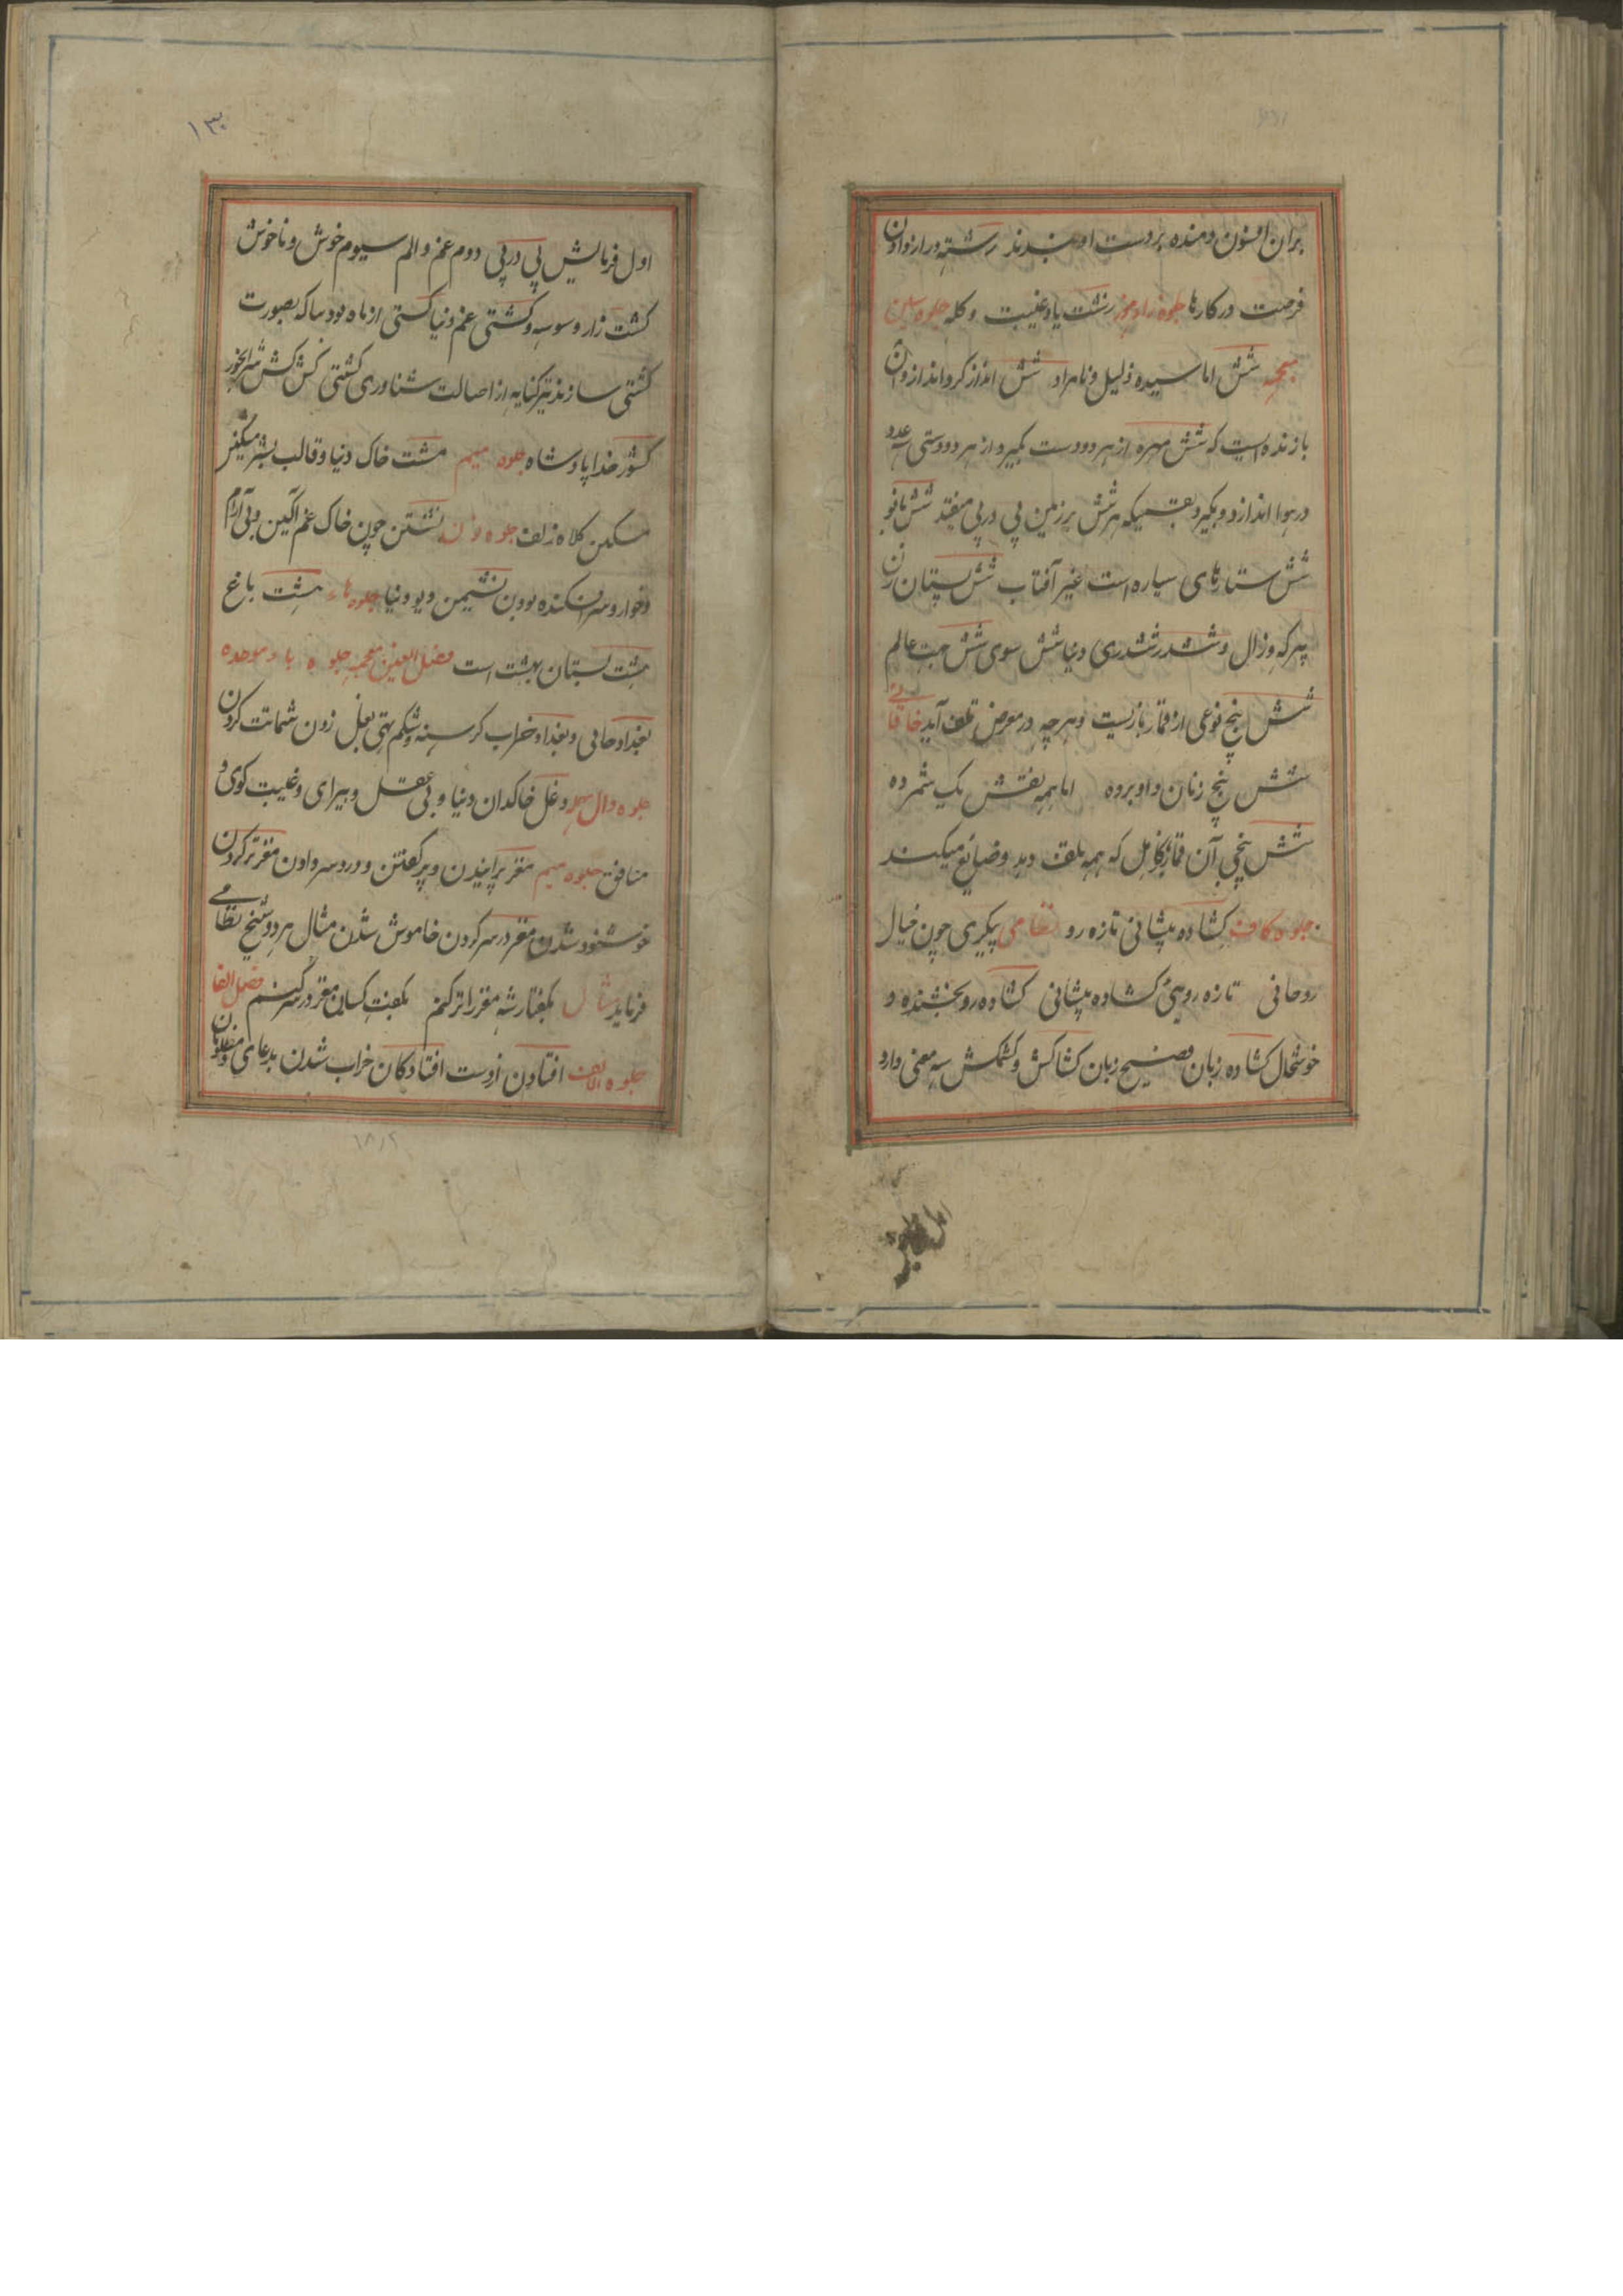 بران افسون دمنده بردست او بندند رشته دراز دادن
فرصت در کارها جلوه زاء موز زشت یاد غیبت و کله جلوه سین
معجمه شش اماسیده ذلیل و نامراد شش انداز کرد انداز و آن
بازنده است که شش مهره از هر دو دست بگیرد از هر دو دستی سه عدد
در هوا اندازد و بگیرد بقسمیکه هر شش بر زمین پی در پی میفتد شش بانو
شش ستارهای سیاره است غیر آفتاب شش پستان زن
پیر که و زال و ششدر ششدری دنیا شش سوی شش جهت عالم
شش پنج نوعی از قمار بازیست و هرچه در معرض تلف آید خاقانی
شش پنج زنان داو برده اما همه نقش یک شمرده
شش پنجی آن قمار کامل که همه تلف دهد و ضایع میکند
جلوه کاف کشاده پیشانی تازه رو نظامی پیکری چون خیال
روحانی تازه رویی کشاده پیشانی کشاده رو بخشنده و
خوشحال کشاده زبان فصیح زبان کشاکش و کشمکش سه معنی دارد
۱۳۰
اول فرمایش پی در پی دوم غم و الم سیوم خوش و ناخوش
کشت زار وسوسه و کشتی غم دنیا کشتی از ماه نو دساکه بصورت
کشتی سازند نیز کنایه از اصالت شناوری کشتی کش کش شرابخور
کشور خدا پادشاه جلوه میم مشت خاک دنیا و قالب بشر
مسکن کلاه زلف جلوه نون نشستن چون خاک غم آگین و بی آرام
و خوار و سرافکنده بودن نشیمن دیو دنیا جلوه هاء هشت باغ
هشت بستان بهشت است فصل الغین معجمه جلوه باء موحده
بغداد خالی و بغداد خراب گرسنه و شکم تهی بغل زدن شماتت کردن
جلوه دال مهمله دغل خاکدان دنیا و بی عقل و بیرای و غیبت کوی و
منافق جلوه میم مغز پرانیدن و پر گفتن و دردسر دادن مغز تر کردن
خوشنود شدن مغز در سر کردن خاموش شدن مثال هر دو شیخ نظامی
فرماید مثال بگفتار شه مغز را تر کنم بگفت کسان مغز در سر کنم فصل الفا
جلوه الالف افتادن از دست افتادگان خراب شدن بدعای مظلومان
۱۸۱۲